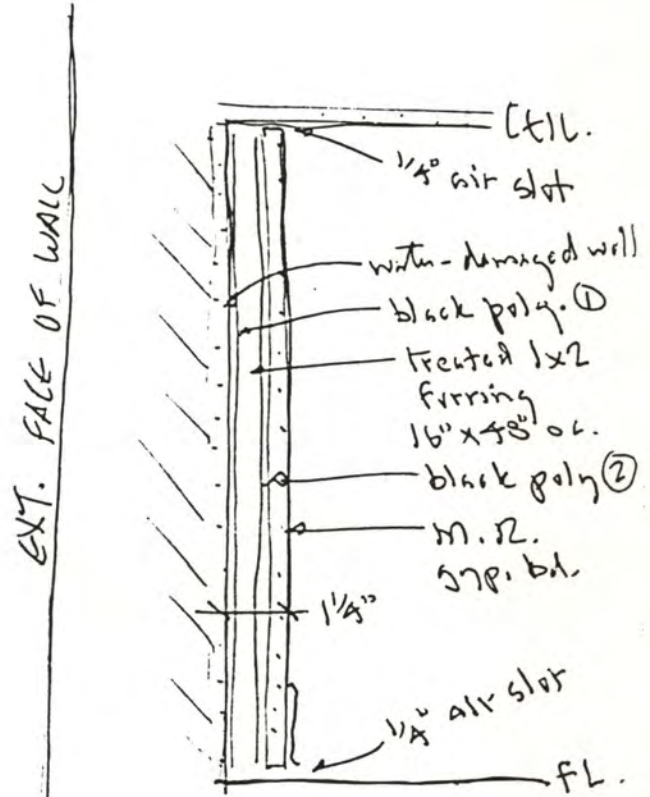 EXT. FACE OF WALL
CEIL.
1/4" air slot
water-damaged wall
black poly. ①
treated 1x2
furring
16" x 48" o.c.
black poly ②
M.R.
gyp. bd.
1 1/4"
1/4" air slot
FL.